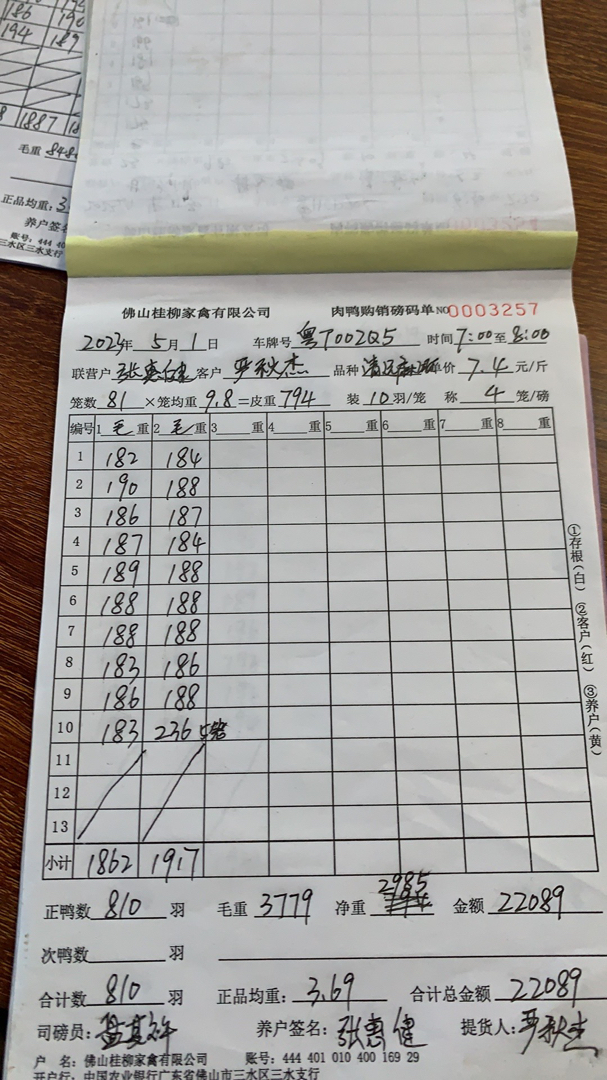 186 190
194 189
1887
毛重 848
正品均重:3.
养户签名
账号:444 40
三水区三水支行
佛山桂柳家禽有限公司 肉鸭购销磅码单 NO 0003257
2023年 5月 1日 车牌号 粤T002Q5 时间 7:00至8:00
联营户 张惠健 客户 尹秋杰 品种 单价 7.4 元/斤
笼数 81 ×笼均重 9.8 =皮重 794 装 10 羽/笼 称 4 笼/磅
编号 1 毛 重 2 毛 重 3 重 4 重 5 重 6 重 7 重 8 重
1 182 184
2 190 188
3 186 187
4 187 184
5 189 188
6 188 188
7 188 188
8 183 186
9 186 188
10 183 236 5笼
11
12
13
小计 1862 1917
①存根(白) ②客户(红) ③养户(黄)
正鸭数 810 羽 毛重 3779 净重 2985 金额 22089
次鸭数 羽
合计数 810 羽 正品均重: 3.69 合计总金额 22089
司磅员: 养户签名: 张惠健 提货人: 尹秋杰
户 名:佛山桂柳家禽有限公司 账号:444 401 010 400 169 29
开户行:中国农业银行广东省佛山市三水区三水支行